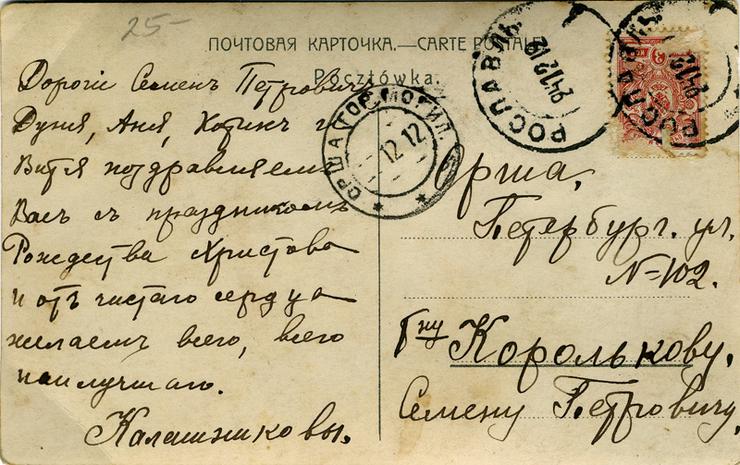 25-
ПОЧТОВАЯ КАРТОЧКА.—CARTE POSTALE
Pocztówka.
Дорогіе Семенъ Петровичъ
Дуня, Аня, и
Витя поздравляемъ
Васъ съ праздникомъ
Рождества Христова
и отъ чистаго сердца
желаемъ всего, всего
наилучшаго.
Калашниковы.
РОСЛАВЛЬ
24 12 12
РОСЛАВЛЬ
ОРША ГОР. МОГИЛ.
12 12
Орша,
Петербург. ул.
№102.
Гну Королькову,
Семену Петровичу,